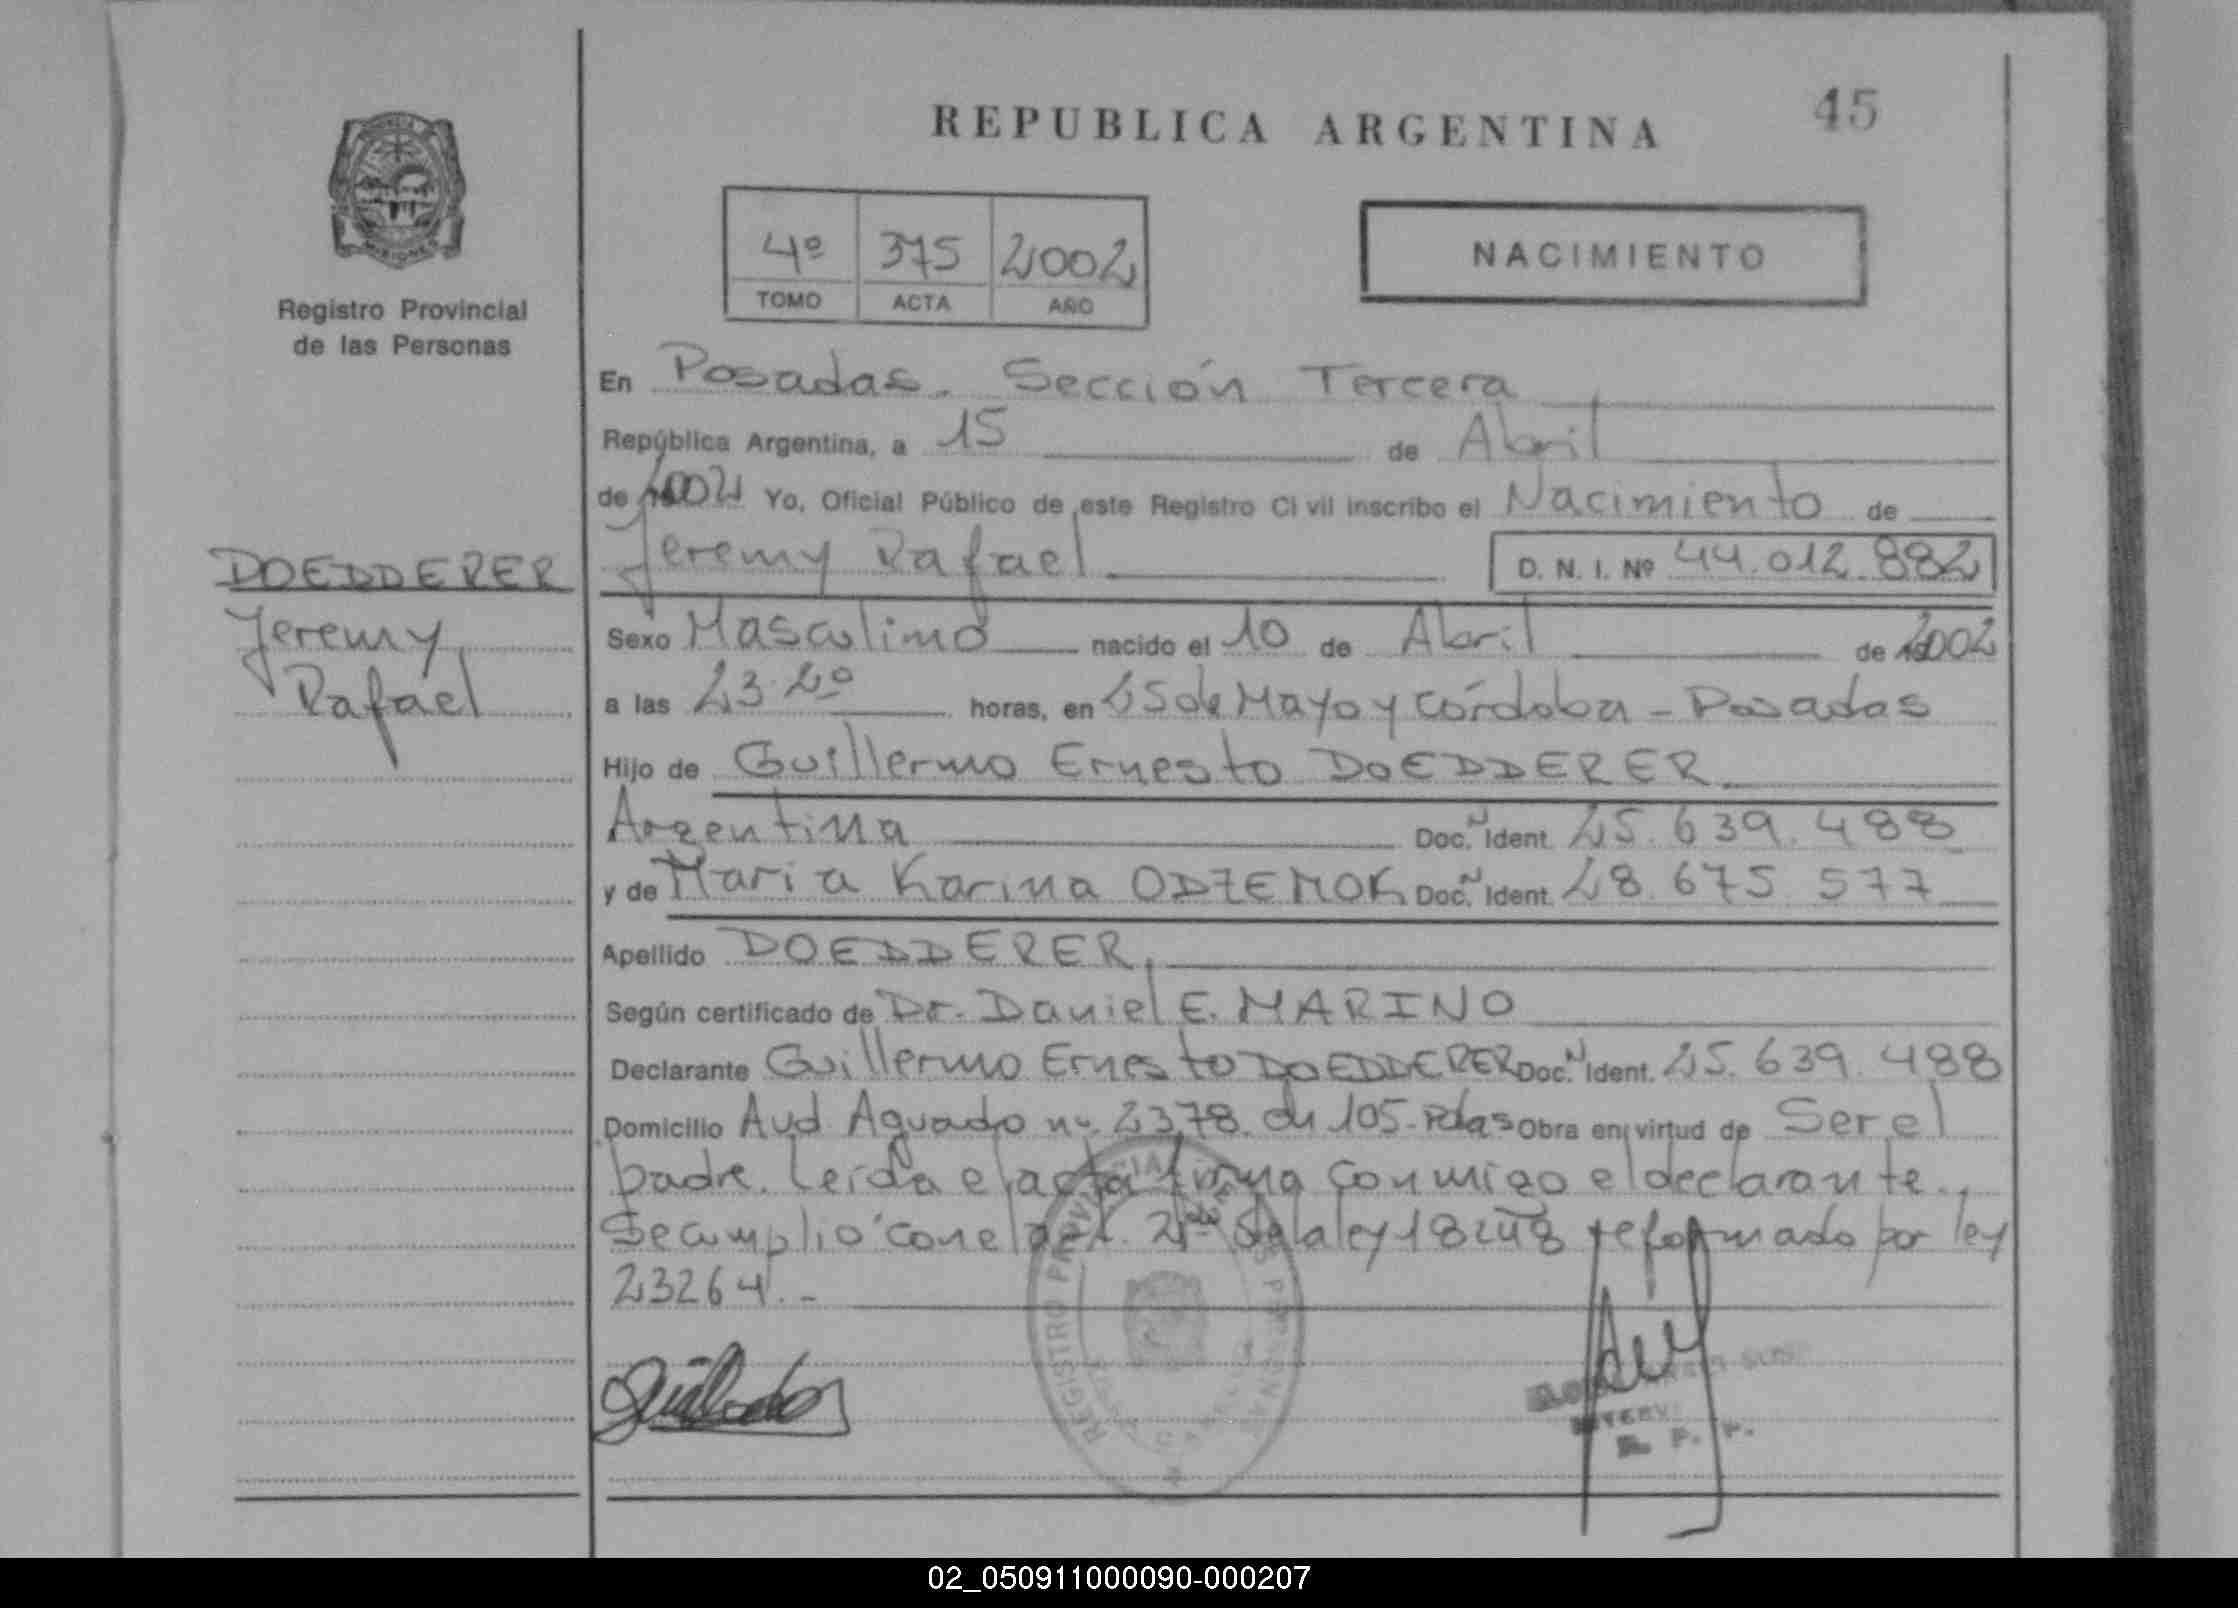 REPUBLICA ARGENTINA
45
4º 375 2002
TOMO ACTA AÑO
NACIMIENTO
Registro Provincial
de las Personas
En Posadas. Sección Tercera
República Argentina, a 15 de Abril
de 2002 Yo, Oficial Público de este Registro Civil inscribo el Nacimiento de
Jeremy Rafael D. N. I. Nº 44.012.882
DOEDDERER
Jeremy
Rafael
Sexo Masculino nacido el 10 de Abril de 2002
a las 23.20 horas, en 25 de Mayo y Córdoba - Posadas
Hijo de Guillermo Ernesto DOEDDERER
Argentina Doc. N Ident. 25.639.488
y de Maria Karina ODZEMOK Doc. N Ident. 28.675.577
Apellido DOEDDERER,
Según certificado de Dr. Daniel E. MARINO
Declarante Guillermo Ernesto DOEDDERER Doc. N Ident. 25.639.488
Domicilio Avd Aguado nº 2378. ch 105- Pdas Obra en virtud de Ser el
padre. Leída el acta firma conmigo el declarante.,
Se cumplió con el art. 2 de la ley 18248 reformado por ley
23264.-
REGISTRO PROVINCIAL DE LAS PERSONAS
R. P. P.
02_050911000090-000207